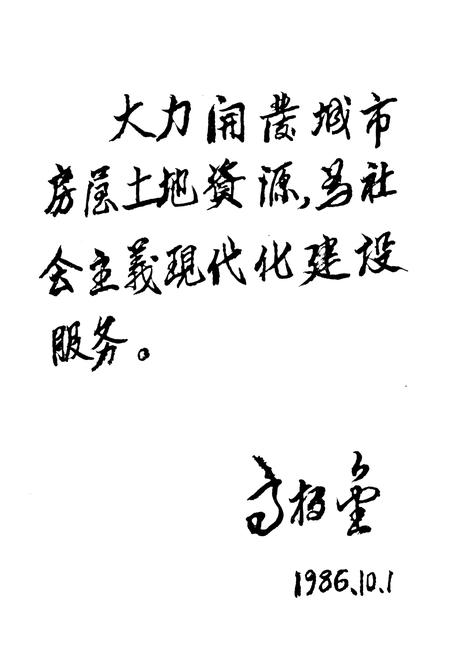 大力開發城市
房屋土地資源,为社
会主義現代化建設
服务。
1986.10.1